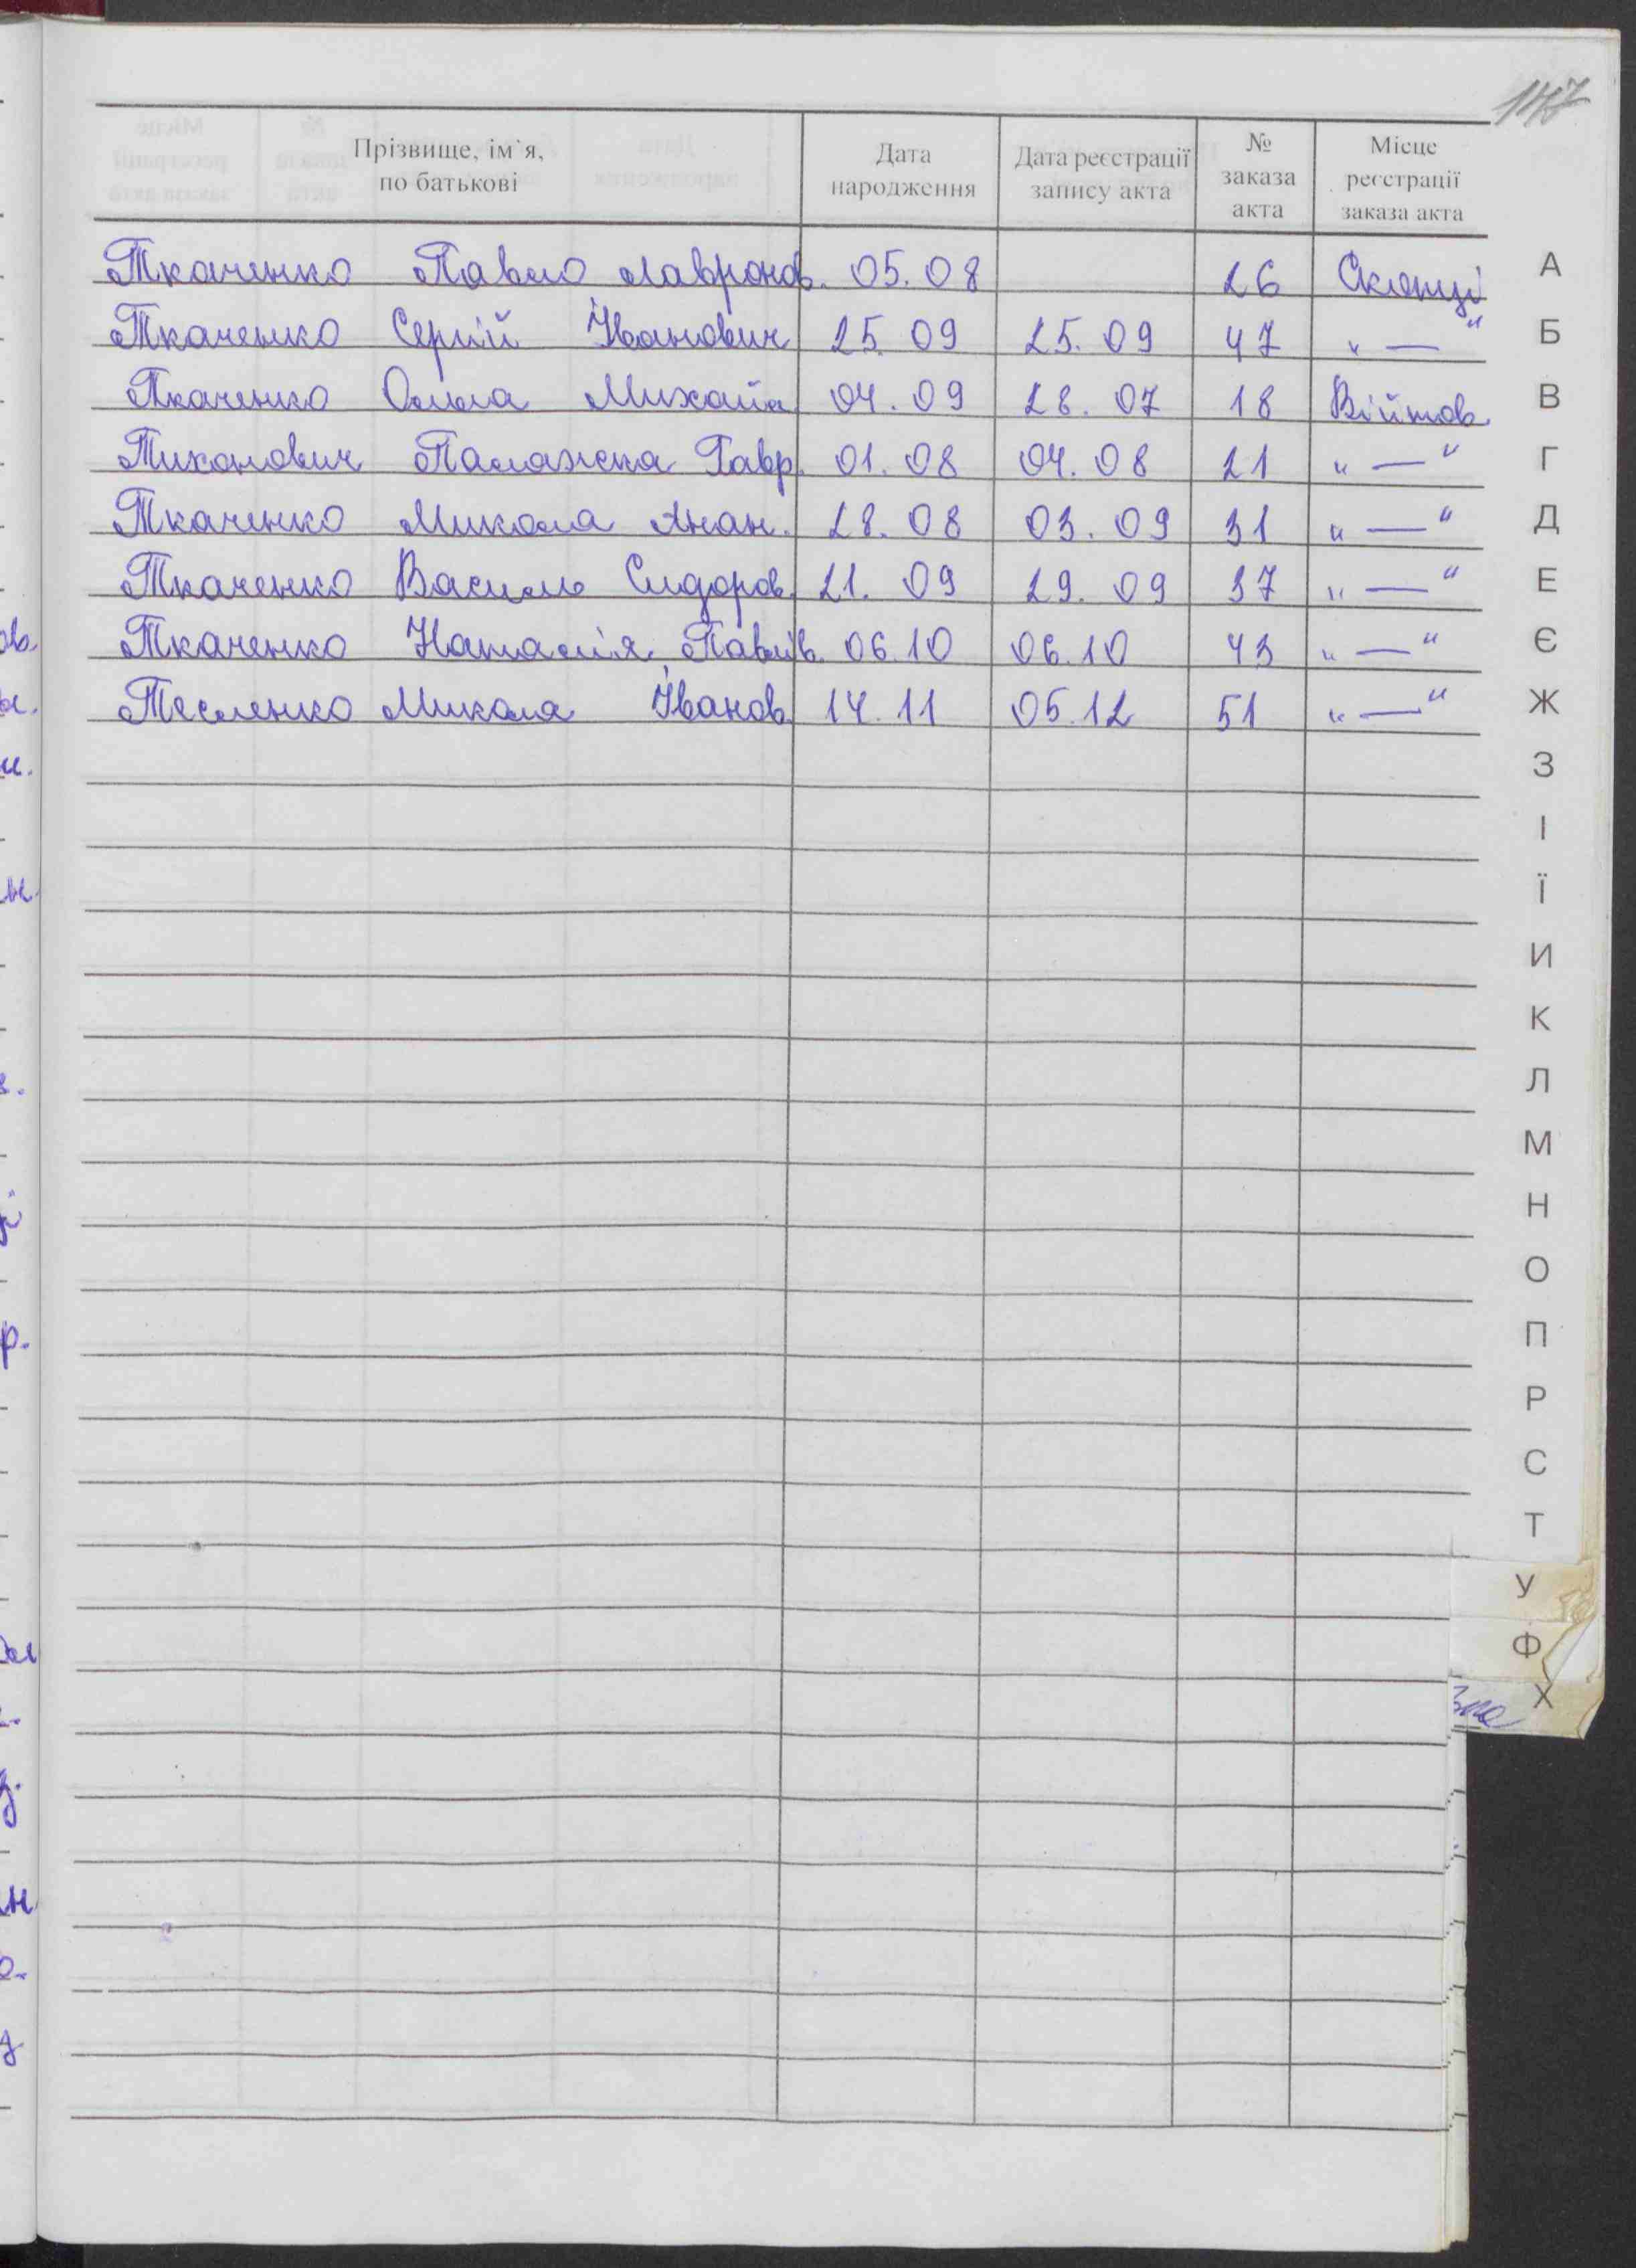 147
Прізвище, ім`я, по батькові
Дата народження
Дата реєстрації запису акта
№ заказа акта
Місце реєстрації заказа акта
Ткаченко Павло Лавронов. 05.08 26 Скопці
Ткаченко Сергій Іванович 25.09 25.09 47 " — "
Ткаченко Ольга Михайл 04.09 28.07 18 Війтов
Тиханович Палажка Гавр. 01.08 04.08 21 " — "
Ткаченко Микола Анан. 28.08 03.09 31 " — "
Ткаченко Василь Сидоров. 21.09 29.09 37 " — "
Ткаченко Наталія Павлів. 06.10 06.10 43 " — "
Тесленко Микола Іванов. 14.11 05.12 51 " — "
А
Б
В
Г
Д
Е
Є
Ж
З
І
Ї
И
К
Л
М
Н
О
П
Р
С
Т
У
Ф
Х